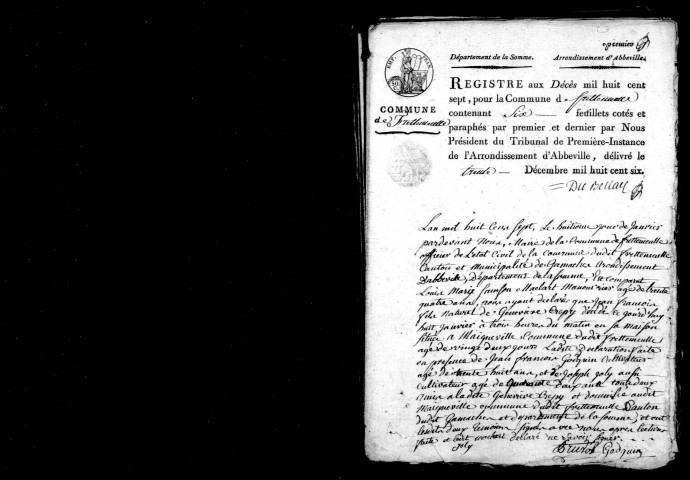 premier
Département de la Somme. Arrondissement d'Abbeville.
EMP. FRA.
COMMUNE
de Frettemeulle
REGISTRE aux Décès mil huit cent
sept, pour la Commune d frettemeulle
contenant Six feuillets cotés et
paraphés par premier et dernier par Nous
Président du Tribunal de Première-Instance
de l'Arrondissement d'Abbeville, délivré le
trente Décembre mil huit cent six.
Lan mil huit Cens Sept, Le huitieme jour de Janvier
pardevant Nous, Maire de la Commune de frettemeulle
officier de Letat Civil de la Commune dudit frettemeulle
Canton et Municipalité de Gamaches Arondissement
dabbeville Département de la somme, Est comparu
Louis Marie Maclart Manouvrier age de trente
quatre ans, nous ayant declaré que Jean francois
fils naturel de Geneviere Crepy décédé ce jourd'huy
huit Janvier à trois heures du matin en sa maison
Située a Maigneville Commune dudit frettemeulle
agé de vingt deux jours Ladite Declaration faite
en presence de Jean francois Godquin Cultivateur
agé de trente huit ans, et de Joseph Joly aussi
Cultivateur agé de Quarante ans tous deux
amis a ladite Genevieve Crepy et domicilié audit
Maigneville commune dudit frettemeulle Canton
dudit Gamaches et departement de la somme et ont
Lesdits deux temoins signés avec nous apres lecture
faite et ledit maclart declaré ne savoir signer
joly Godquin